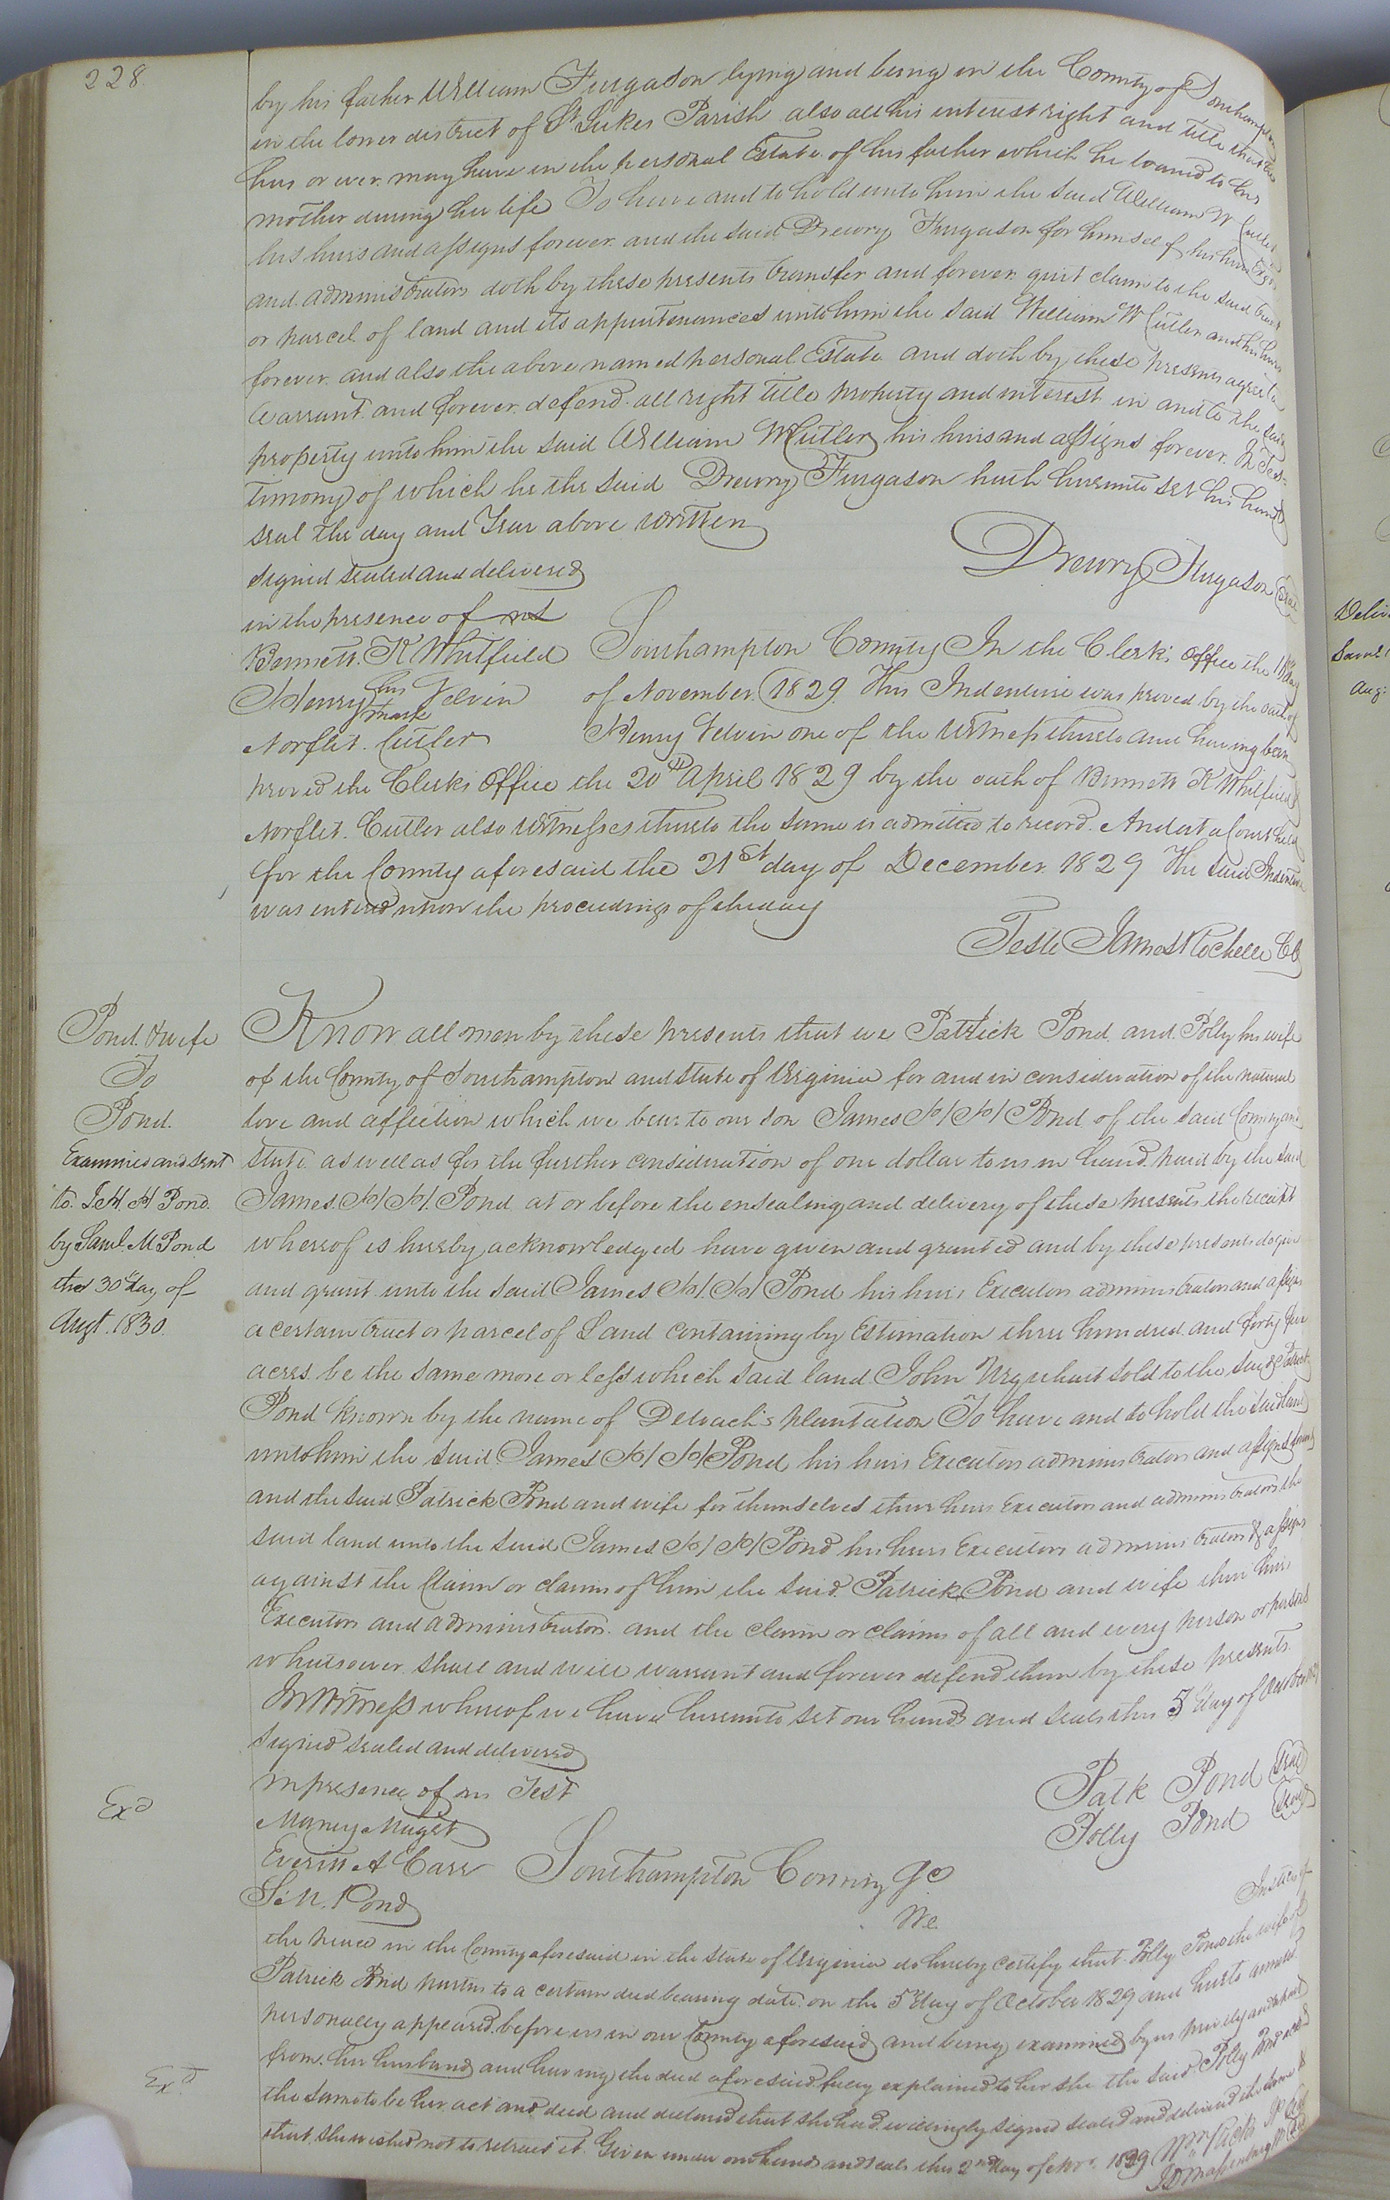 228.
by his father William Furgason lying and being in the County of Southampton
in the lower district of St Lukes Parish also all his interest right and title that he
has or ever may have in the personal Estate of his father which he loaned to his
mother during her life To have and to hold unto him the said William W Cutler
his heirs and assigns forever and the said Drewry Furgason for himself his heirs Exors
and administrators doth by these presents transfer and forever quit claim to the said tract
or parcel of land and its appurtenances unto him the said William W Cutler and his heirs
forever and also the above named personal Estate and doth by these presents agree to
Warrant and forever defend all right title property and interest in and to the said
property unto him the said William W Cutler his heirs and assigns forever. In Tes-
timony of which he the said Drewry Furgason hath hereunto set his hand &
seal the day and Year above written
Signed sealed and delivered
in the presence of us
Drewry Furgason Seal
Bennett K Whitfield
Henry his mark Velvin
Norflit Cutler
Southampton County In the Clerk's Office the day
of November 1829. This Indenture was proved by the oath of
Henry Velvin one of the Witness thereto and having been
proved the Clerks Office the 20th April 1829 by the oath of Bennett K Whitfield &
Norflit Cutler also Witnesses thereto the same is admitted to record. And at a Court held
for the County aforesaid the 21st day of December 1829 The said Indenture
was entered upon the proceedings of the day
Teste James Rochelle CC
Pond & wife
To
Pond.
Examined and sent
to J. H. H Pond.
by Saml. M Pond
the 30th day of
Augt. 1830.
Know all men by these presents that we Patrick Pond and Polly his wife
of the County of Southampton and State of Virginia for and in consideration of the natural
love and affection which we bear to our son James H H Pond of the said County and
State as well as for the further consideration of one dollar to us in hand paid by the said
James H H Pond at or before the ensealing and delivery of these presents the receipt
whereof is hereby acknowledged have given and granted and by these presents do give
and grant unto the said James H H Pond his heirs Executors administrators and assigns
a certain tract or parcel of Land containing by Estimation three hundred and forty
acres be the same more or less which said land John Urquhart sold to the said Patrick
Pond known by the name of Deloach's plantation To have and to hold the said land
unto him the said James H H Pond his heirs Executors administrators and assigns forever
and the said Patrick Pond and wife for themselves their heirs Executors and administrators the
said land unto the said James H H Pond his heirs Executors administrators & assigns
against the Claim or claims of him the said Patrick Pond and wife their heirs
Executors and administrators and the claim or claims of all and every person or persons
whatsoever shall and will warrant and forever defend them by these presents.
In Witness whereof we have hereunto set our hands and seals this 5th day of October 1829
Signed sealed and delivered
in presence of us Test
Patk Pond Seal
Polly Pond Seal
Exd
Maney Maget
Everitt A Carr
S. M. Pond
Southampton County Sc
We
Justices of
the peace in the County aforesaid in the State of Virginia do hereby certify that Polly Pond the wife of
Patrick Pond parties to a certain deed bearing date on the 5th day of October 1829 and hereto annexed
personally appeared before us in our County aforesaid and being examined by us privily and apart
from her husband and having the deed aforesaid fully explained to her she the said Polly Pond
the same to be her act and deed and declared that she had willingly signed sealed and delivered the same &
Exd
that she wished not to retract it. Given under our hands and seals this 2nd day of Novr. 1829